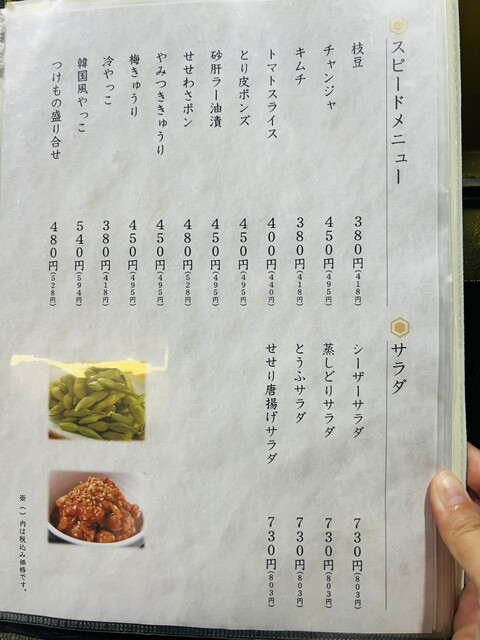 スピードメニュー
枝豆 380円(418円)
チャンジャ 450円(495円)
キムチ 380円(418円)
トマトスライス 400円(440円)
とり皮ポンズ 450円(495円)
砂肝ラー油漬 450円(495円)
せせわさポン 480円(528円)
やみつききゅうり 450円(495円)
梅きゅうり 450円(495円)
冷やっこ 380円(418円)
韓国風やっこ 540円(594円)
つけもの盛り合せ 480円(528円)
サラダ
シーザーサラダ 730円(803円)
蒸しどりサラダ 730円(803円)
とうふサラダ 730円(803円)
せせり唐揚げサラダ 730円(803円)
※()内は税込み価格です。